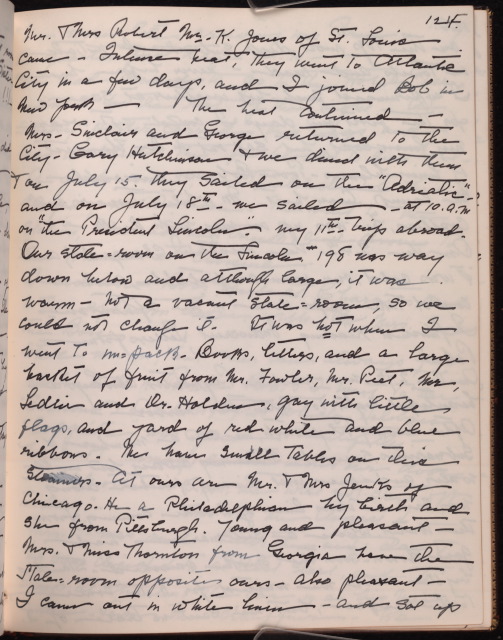 124.
Mrs. & Mrs Robert Mc. K. Jones of St. Louis
came - Intense heat, they went to Atlantic
City in a few days, and I joined Bob in
New York - The heat continued -
Mrs - Sinclair and George returned to the
City - Gary Hutchinson & we dined with them
on July 15. they sailed on the "Adriatic" -
and on July 18th - we sailed - at 10. a.m
on "the President Lincoln". my 11th - trip abroad.
Our state=room on the Lincoln " 198 was way
down below and although large, it was
warm - not a vacant state=room, so we
could not change it. It was hot when I
went to un=pack - Books, letters, and a large
basket of fruit from Mr. Fowler, Mr. Peet, Mr,
and Dr. Holden, gay with little
flags, and yard of red white and blue
ribbons. We have small tables on this
Steamers - At ours are Mr. & Mrs Jenks of
Chicago. He a Philadelphian by birth and
she from Pittsburgh. Young and pleasant -
Mrs. & Miss Thornton from Georgia have the
State=room opposite ours - also pleasant -
I came out in white linen - and sat up